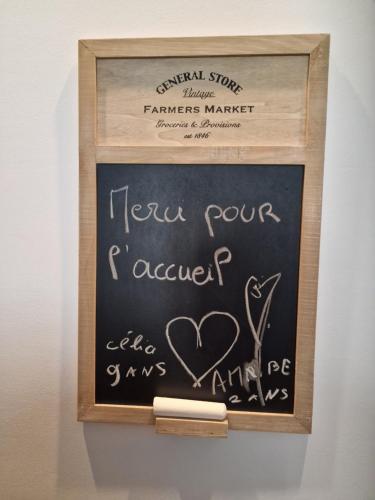 GENERAL STORE
Vintage
FARMERS MARKET
Groceries & Provisions
est 1846
Merci pour
l'accueil
célia
9 ANS
2 ANS